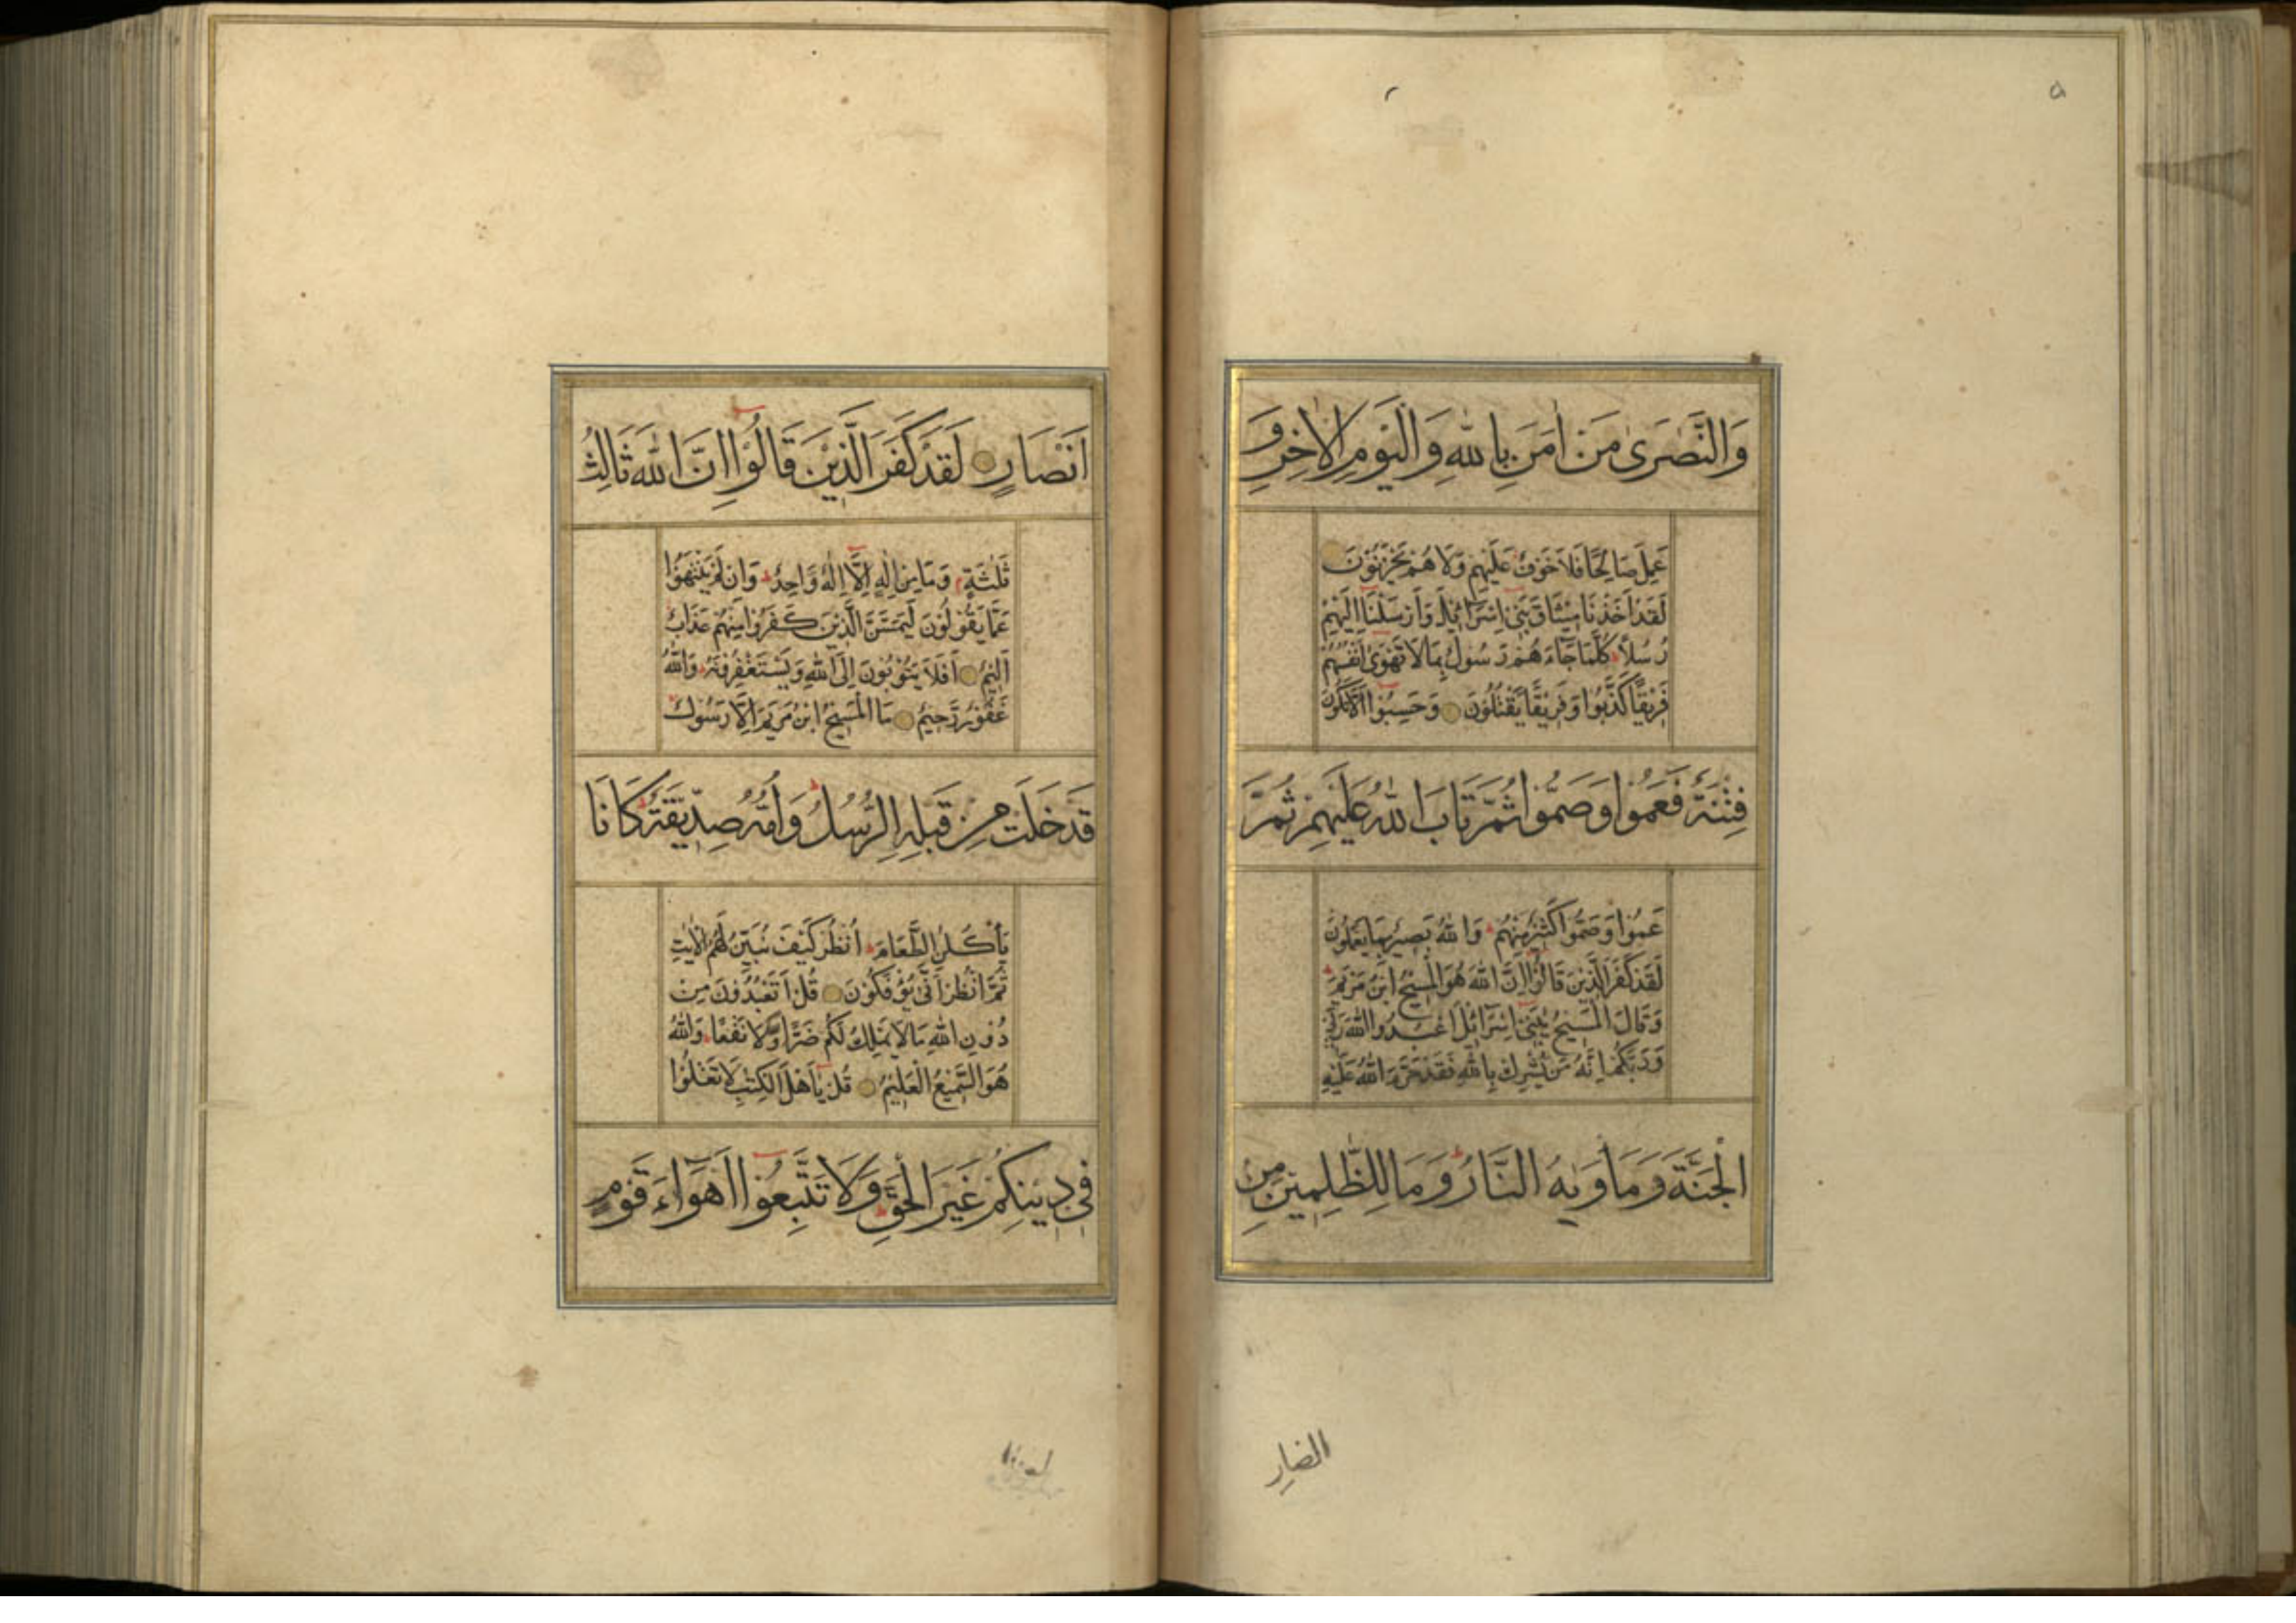 وَالنَّصٰرٰى مَنْ اٰمَنَ بِاللّٰهِ وَالْيَوْمِ الْاٰخِرِ وَ
عَمِلَ صَالِحًا فَلَا خَوْفٌ عَلَيْهِمْ وَلَا هُمْ يَحْزَنُوْنَ
لَقَدْ اَخَذْنَا مِيْثَاقَ بَنِيْٓ اِسْرَائِيْلَ وَاَرْسَلْنَآ اِلَيْهِمْ
رُسُلًا كُلَّمَا جَآءَهُمْ رَسُوْلٌ بِمَا لَا تَهْوٰٓى اَنْفُسُهُمْ
فَرِيْقًا كَذَّبُوْا وَفَرِيْقًا يَقْتُلُوْنَ وَحَسِبُوْٓا اَلَّا تَكُوْنَ
فِتْنَةٌ فَعَمُوْا وَصَمُّوْا ثُمَّ تَابَ اللّٰهُ عَلَيْهِمْ ثُمَّ
عَمُوْا وَصَمُّوْا كَثِيْرٌ مِنْهُمْ وَاللّٰهُ بَصِيْرٌ بِمَا يَعْمَلُوْنَ
لَقَدْ كَفَرَ الَّذِيْنَ قَالُوْٓا اِنَّ اللّٰهَ هُوَ الْمَسِيْحُ ابْنُ مَرْيَمَ
وَقَالَ الْمَسِيْحُ يٰبَنِيْٓ اِسْرَآئِيْلَ اعْبُدُوا اللّٰهَ رَبِّيْ
وَرَبَّكُمْ اِنَّهُ مَنْ يُشْرِكْ بِاللّٰهِ فَقَدْ حَرَّمَ اللّٰهُ عَلَيْهِ
الْجَنَّةَ وَمَأْوٰيهُ النَّارُ وَمَا لِلظّٰلِمِيْنَ مِنْ
انصار
اَنْصَارٍ لَقَدْ كَفَرَ الَّذِيْنَ قَالُوْٓا اِنَّ اللّٰهَ ثَالِثُ
ثَلٰثَةٍ وَمَا مِنْ اِلٰهٍ اِلَّآ اِلٰهٌ وَاحِدٌ وَاِنْ لَمْ يَنْتَهُوْا
عَمَّا يَقُوْلُوْنَ لَيَمَسَّنَّ الَّذِيْنَ كَفَرُوْا مِنْهُمْ عَذَابٌ
اَلِيْمٌ اَفَلَا يَتُوْبُوْنَ اِلَى اللّٰهِ وَيَسْتَغْفِرُوْنَهُ وَاللّٰهُ
غَفُوْرٌ رَحِيْمٌ مَا الْمَسِيْحُ ابْنُ مَرْيَمَ اِلَّا رَسُوْلٌ
قَدْ خَلَتْ مِنْ قَبْلِهِ الرُّسُلُ وَاُمُّهُ صِدِّيْقَةٌ كَانَا
يَأْكُلَانِ الطَّعَامَ اُنْظُرْ كَيْفَ نُبَيِّنُ لَهُمُ الْاٰيٰتِ
ثُمَّ انْظُرْ اَنّٰى يُؤْفَكُوْنَ قُلْ اَتَعْبُدُوْنَ مِنْ
دُوْنِ اللّٰهِ مَا لَا يَمْلِكُ لَكُمْ ضَرًّا وَلَا نَفْعًا وَاللّٰهُ
هُوَ السَّمِيْعُ الْعَلِيْمُ قُلْ يٰٓاَهْلَ الْكِتٰبِ لَا تَغْلُوْا
فِيْ دِيْنِكُمْ غَيْرَ الْحَقِّ وَلَا تَتَّبِعُوْٓا اَهْوَآءَ قَوْمٍ